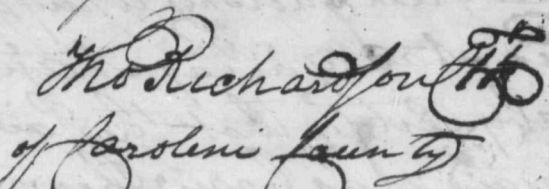 Tho Richardson
of Caroleni County